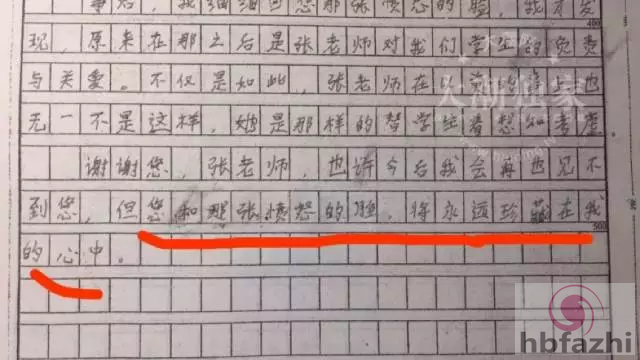 事后，我细细回想那张愤怒的脸，我才发
400
现，原来在那之后是张老师对我们学生的负责
与关爱。不仅是如此，张老师在上也
无一不是这样，她是那样的替学生着想和考虑
谢谢您，张老师，也许今后我会再也见不
到您，但您和那张愤怒的脸，将永远珍藏在我
500
的心中。
独家
hbfazhi